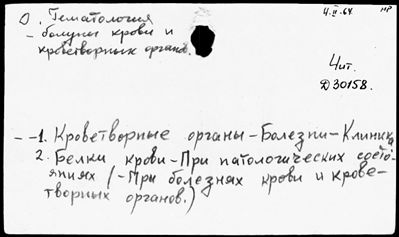 О. Гематология
4.II.64. НР
– болезни крови и
кроветворных органов.
Чит.
Д30158.
– –1. Кроветворные органы–Болезни–Клиника
2. Белки крови–При патологических состо-
яниях (–При болезнях крови и крове-
творных органов.)